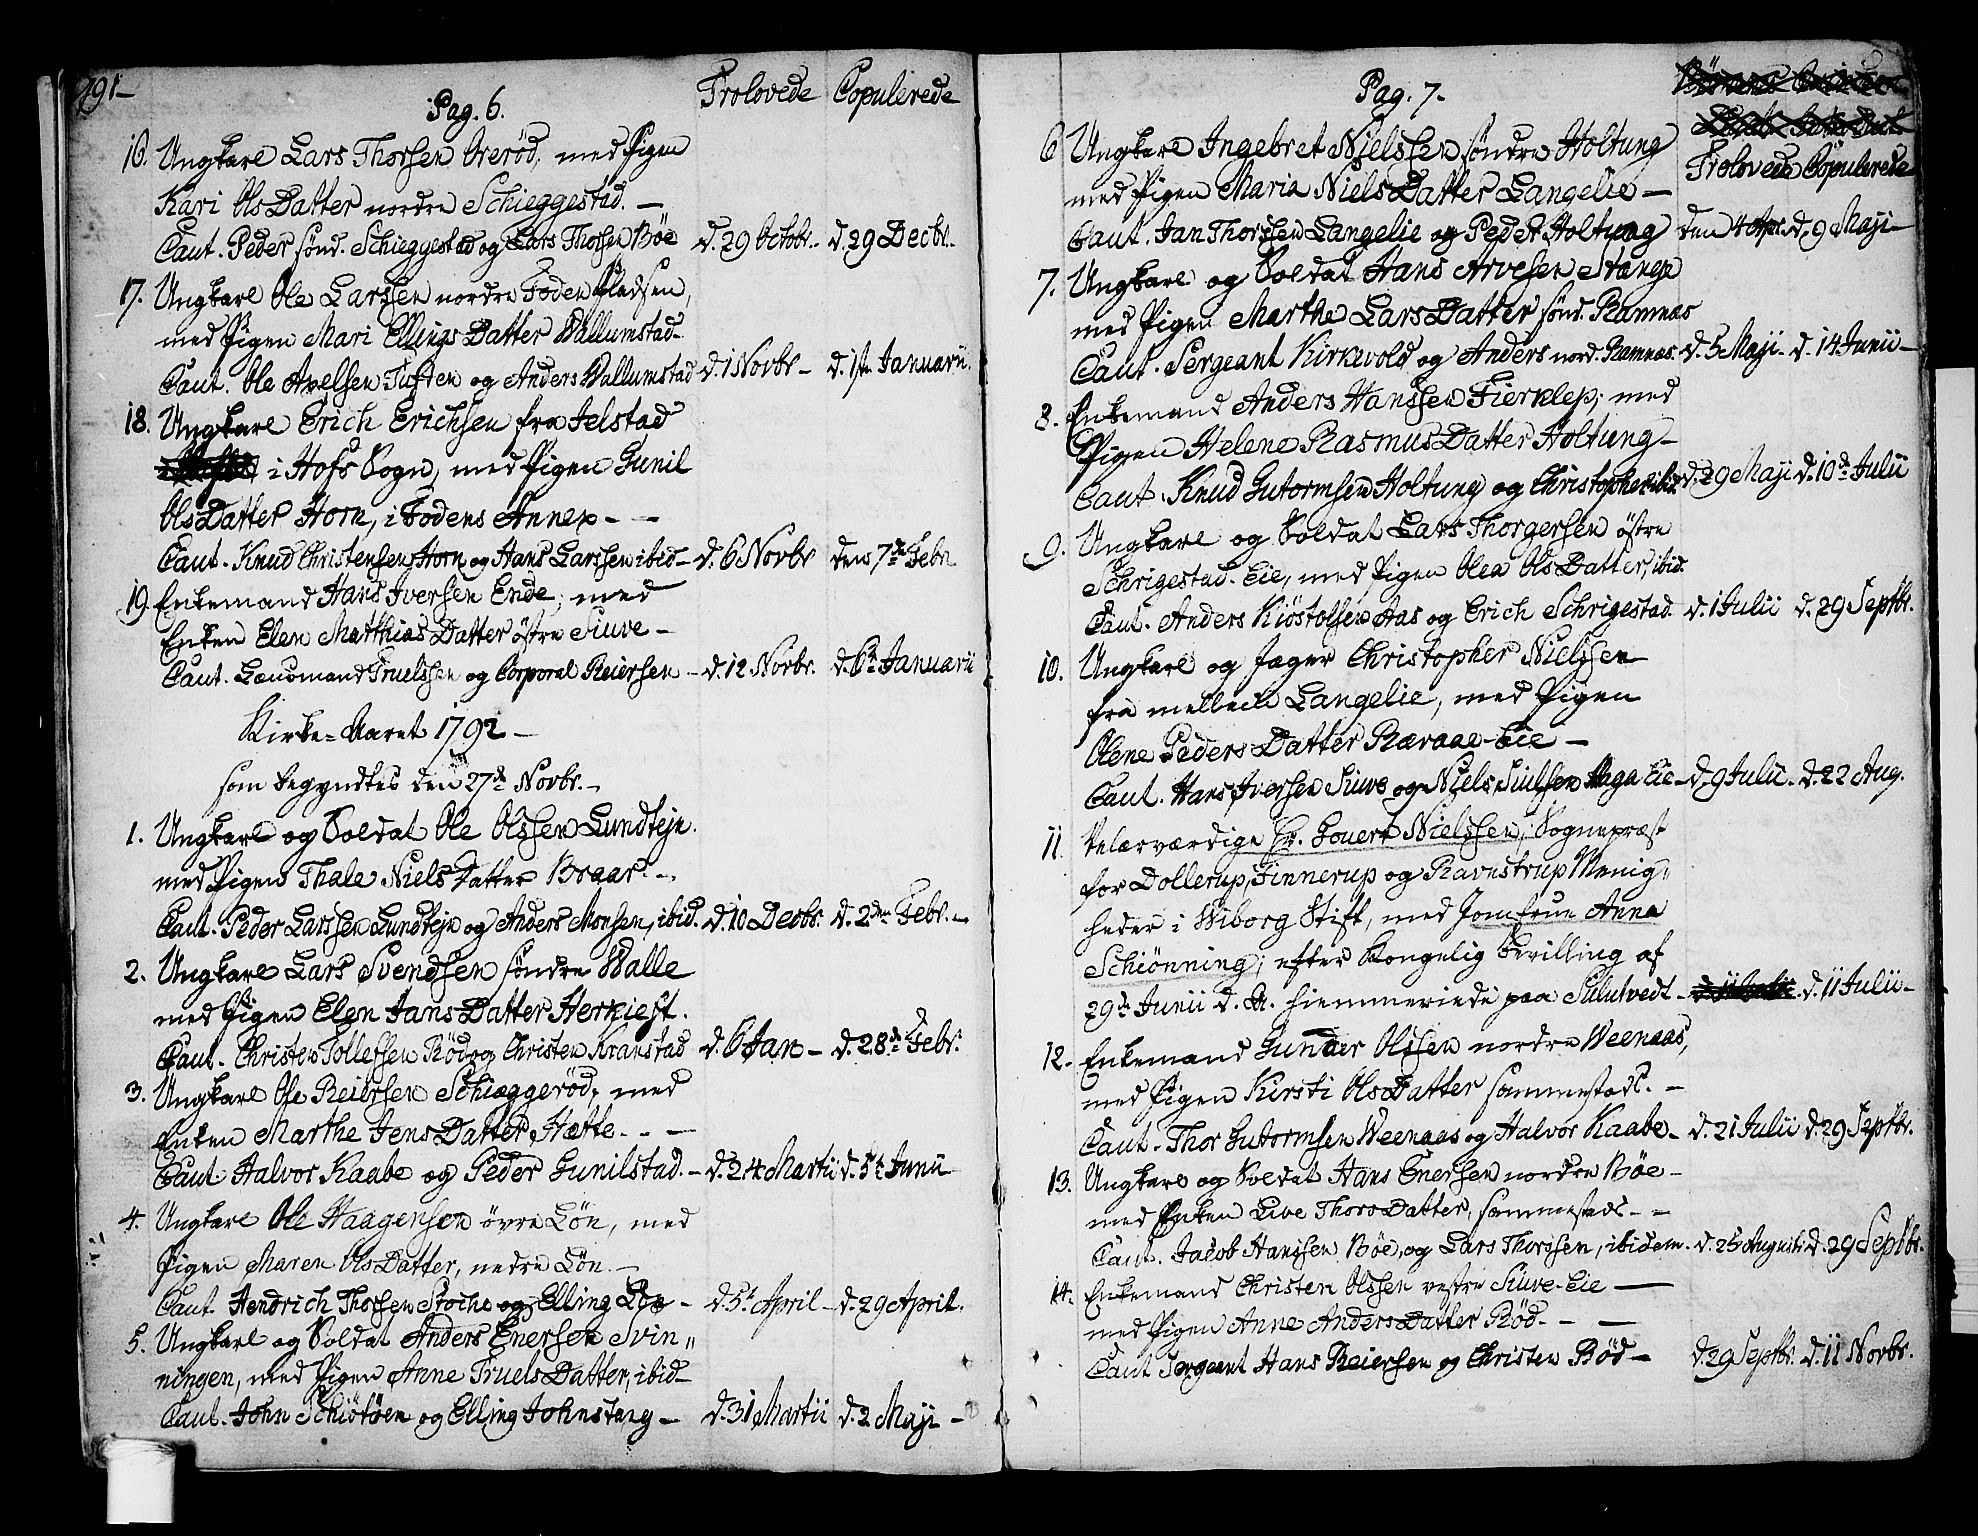 791-
Pag. 6.
Trolovede Copulerede
16. Ungkarl Lars Thorsen Ørerød, med Pigen
Kari OlsDatter nordre Schieggestad. -
Caut. Peder sønd. Schieggestad og Lars Thorsen Bøe d. 29 Octobr. d. 29 Decbr.
17. Ungkarl Ole Larssen nordre Foden Pladsen,
med Pigen Mari EllingsDatter Wallumstad-
Caut. Ole Axelsen Tuften og Anders Wallumstad d. 1 Novbr - d. 1ste Januarii.
18. Ungkarl Erich Erichsen fra Jelstad
i Hofs Sogn, med Pigen Gunil
OlsDatter Horn, i Fodens Annex - -
Caut. Knud Christensen Horn og Hans Larssen ibid- d. 6 Novbr den 7de Febr
19. Enkemand Hans Iversen Ende, med
Enken Elen MatthiasDatter østre Siuve -
Caut. Lensmand Truelssen og Corporal Reiersen - d. 12 Novbr. d. 6te Januarii
Kirke-Aaret 1792 -
som begyndtes den 27de Novbr. -
1. Ungkarl og Soldat Ole Olssen Lundtejn.
med Pigen Thale NielsDatter Braar. -
Caut. Peder Larssen Lundtejn og Anders Monsen, ibid. d. 10 Decbr. d. 2den Febr. -
2. Ungkarl Lars Svendsen søndre Walle
med Pigen Elen JansDatter Herkiest.
Caut. Christen Tollefsen Rød og Christen Kranstad d. 6 Jan - d. 28de Febr.
3. Ungkarl Ole Reiersen Schiæggerød, med
Enken Marthe JensDatter Hætte. - -
Caut. Halvor Kaabe og Peder Gunilstad. - d. 24 Martii d. 5te Junii
4. Ungkarl Ole Haagensen øvre Løn, med
Pigen Maren OlsDatter, nedre Løn. -
Caut Hendrich Thorsen Stoche og Elling Løn - d. 5te April - d. 29 April.
5. Ungkarl og Soldat Anders Enersen Svin„
ningen, med Pigen Anne TruelsDatter, ibid-
Caut. John Schiøtøen og Elling Johnstang - d. 31 Martii d. 2 Maji -
Pag. 7.
Trolovede Copulerede
6 Ungkarl Ingebret Nielssen søndre Holtung
med Pigen Maria NielsDatter Langelie -
Caut. Jan Thorssen Langelie og Peder Holtung den 4 Apr. d. 9 Maji -
7. Ungkarl og Soldat Hans Arvesen Stange
med Pigen Marthe LarsDatter sønd. Ramnæs
Caut. Sergeant Kirkevold og Anders nord. Ramnæs. d. 5 Maji - d. 14 Junii -
8. Enkemand Anders Hanssen Fierklep, med
Pigen Helene RasmusDatter Holtung -
Caut. Knud Gutormsen Holtung og Christopher ibid. d. 29 Maji d. 10de Julii
9. Ungkarl og Soldat Lars Thorgersen østre
Schrigestad-Eie, med Pigen Olea OlsDatter, ibid.
Caut. Anders Kiøstolsen Aas og Erich Schrigestad d. 1 Julii d. 29 Septbr.
10. Ungkarl og Jæger Christopher Nielssen
fra mellem Langelie, med Pigen
Olene PedersDatter Rævaae-Eie -
Caut. Hans Iversen Siuve og Niels Eie - d. 9 Julii. d. 22 Aug.
11 Velærværdige Hr. Govert Nielssen, Sognepræst
for Dollerup, Finnerup og Ravnstrup Menig„
heder i Wiborg Stift, med Jomfrue Anna
Schiønning; efter Kongelig Bevilling af
29de Junii d. A. hiemmeviede paa Sulutvedt - d. 11 Julii -
12. Enkemand Gunder Olssen nordre Weenaas,
med Pigen Kirsti OlsDatter sammestads. -
Caut. Thor Gutormsen Weenaas og Halvor Kaabe - d. 21 Julii d. 29 Septbr.
13. Ungkarl og Soldat Hans Enersen nordre Bøe -
med Enken Live ThorsDatter, sammestads - -
Caut. Jacob Hanssen Bøe, og Lars Thorssen, ibidem. d. 25 Augusti d. 29 Septbr.
14. Enkemand Christen Olssen vestre Siuve-Eie -
med Pigen Anne AndersDatter Rød. - -
Caut Sergeant Hans Reiersen og Christen Rød - d. 29 Septbr. d. 11 Novbr.